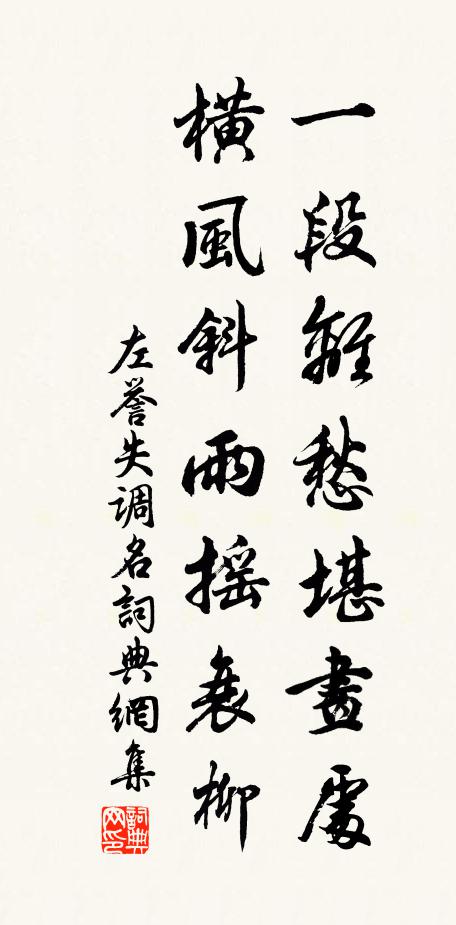 一段離愁堪畫處
橫風斜雨摇衰柳
左譽失调名詞典網集
詞典网印